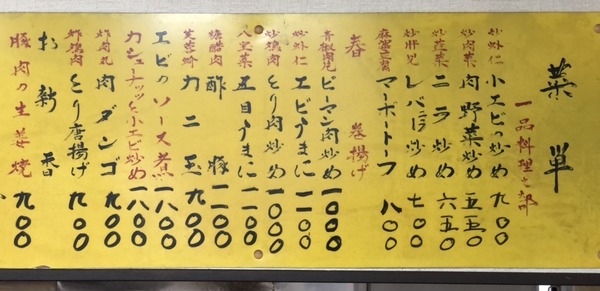 菜単
一品料理之部
炒虾仁 小エビの炒め 九〇〇
炒肉菜 肉野菜炒め 五五〇
炒韮菜 ニラ炒め 六五〇
炒肝児 レバニラ炒め 七〇〇
麻婆豆腐 マーボートーフ 八〇〇
春巻揚げ
青椒肉児 ピーマン肉炒め 一〇〇〇
炒虾仁 エビうまに 一一〇〇
炒鶏肉 とり肉炒め 一〇〇〇
八宝菜 五目うまに 一一〇〇
糖醋肉 酢豚 一一〇〇
芙蓉蟹 カニ玉 九〇〇
エビのソース煮 一八〇〇
カシューナッツと小エビ炒め 一八〇〇
炸肉丸 肉ダンゴ 九〇〇
炸鶏肉 とり唐揚げ 九〇〇
お新香
豚肉の生姜焼 九〇〇